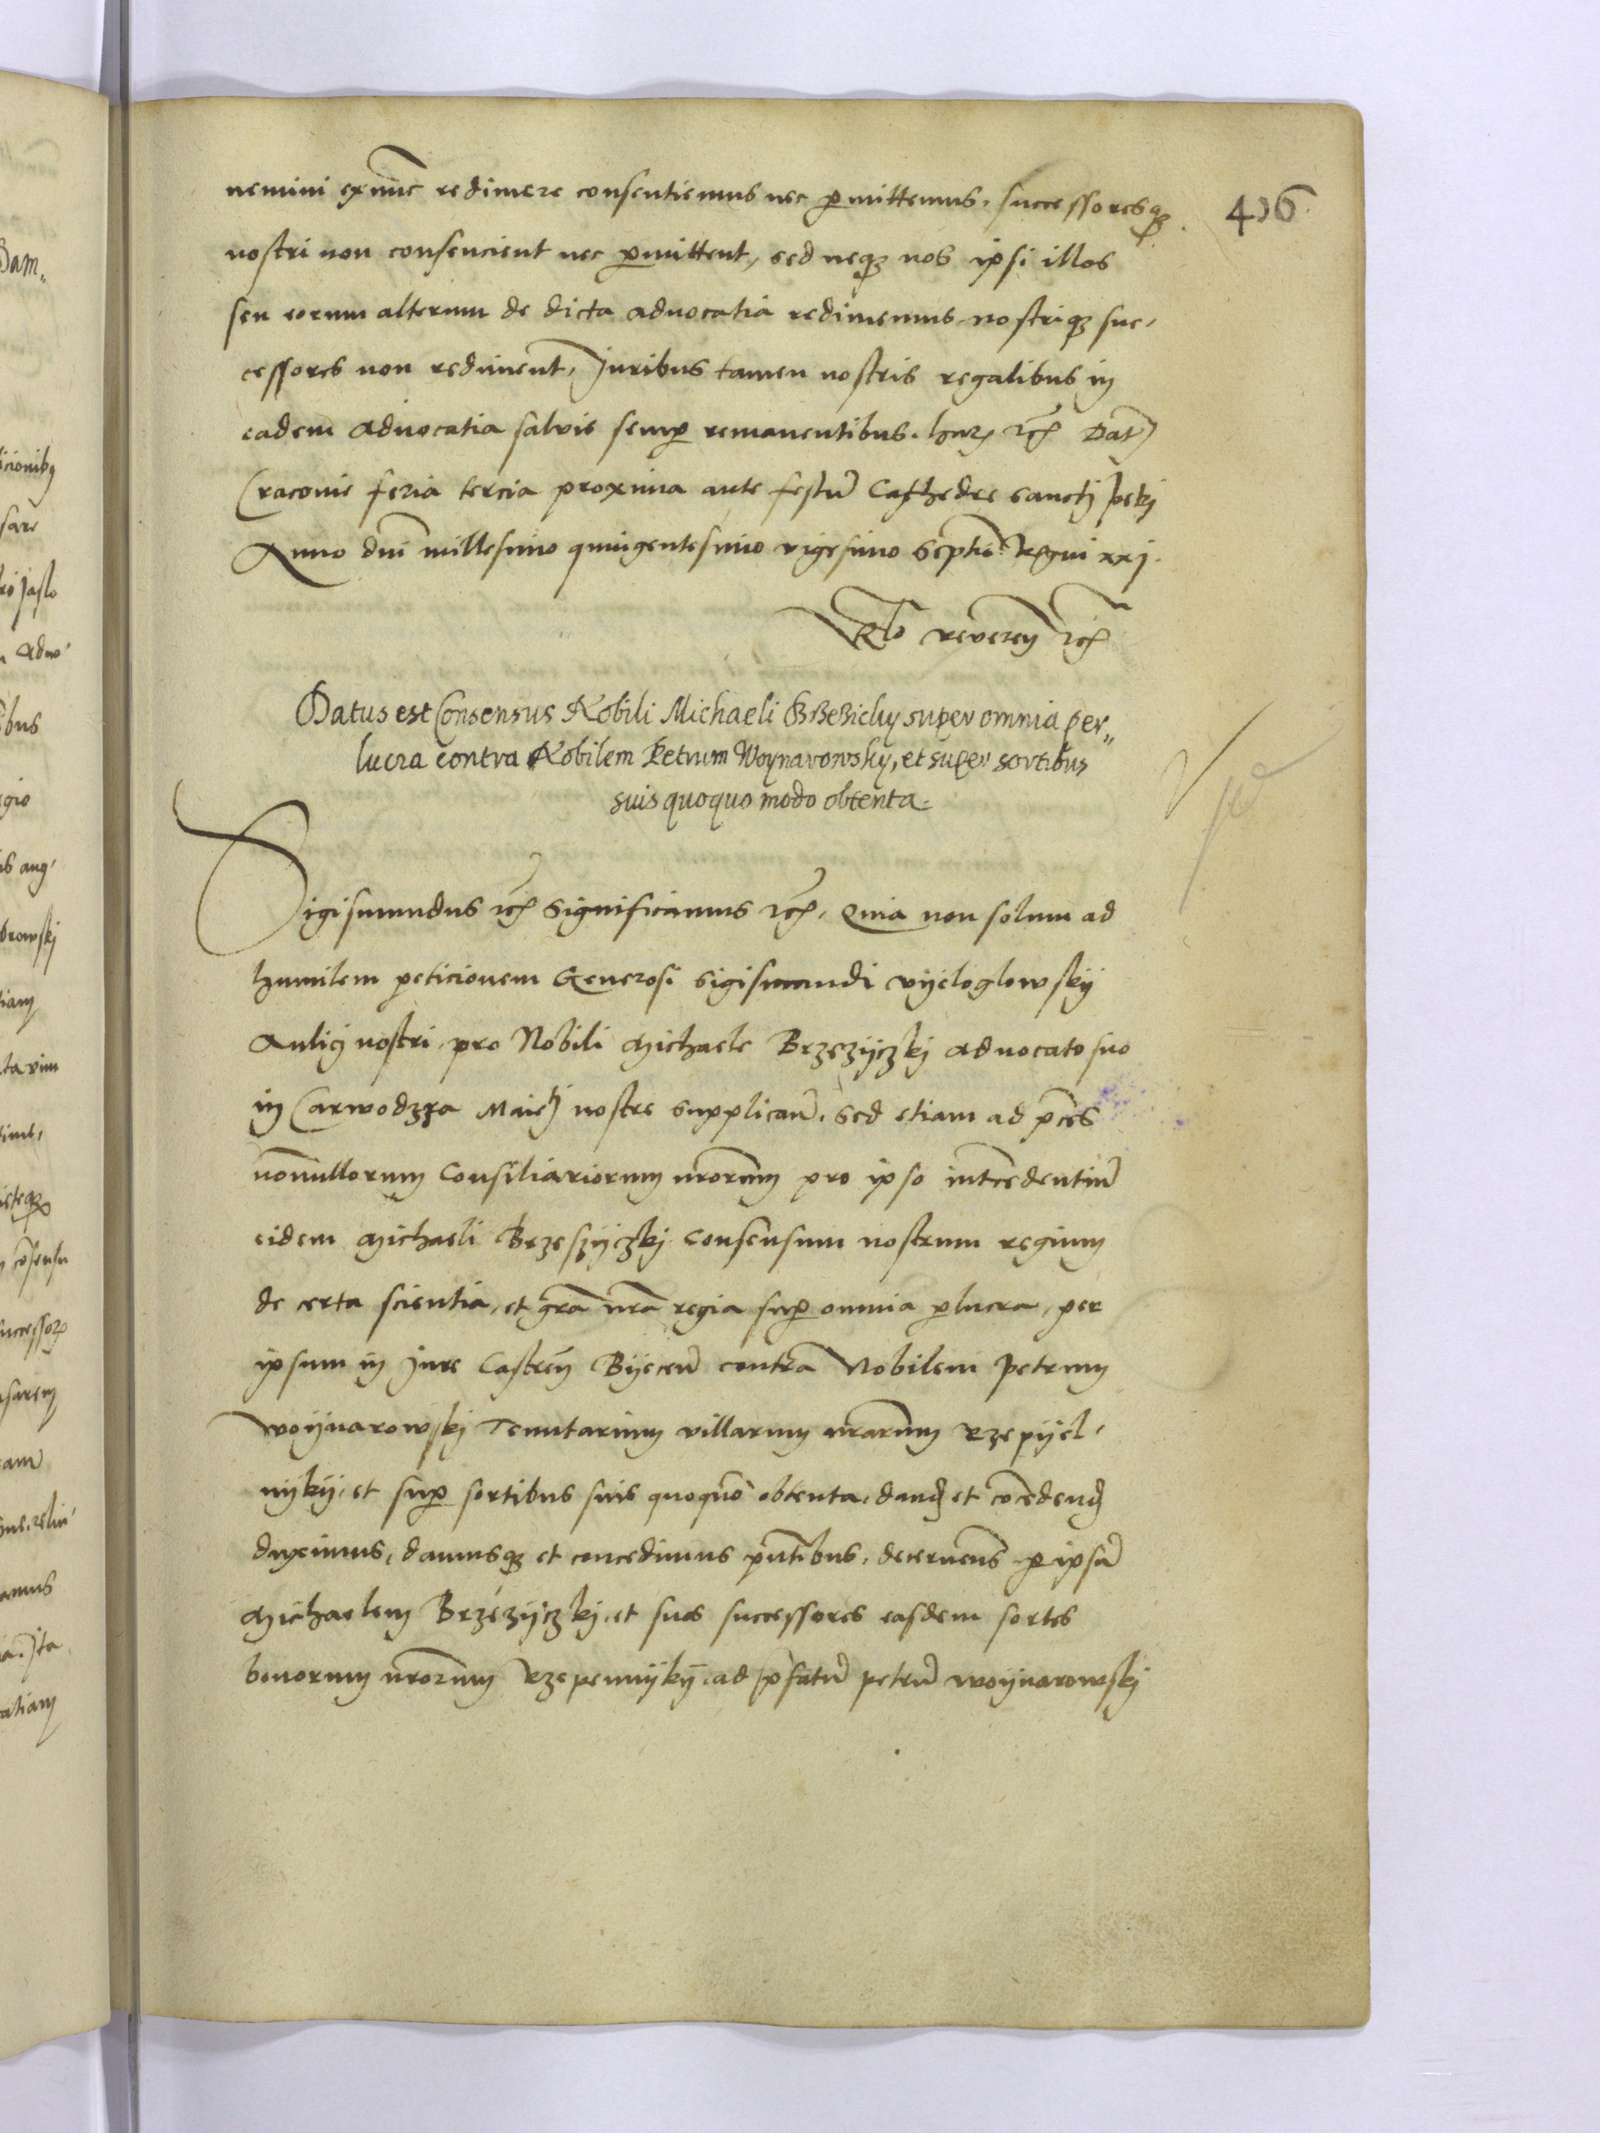 436
nemini exnūc redimere consentiemus nec ꝑmittemus, successoresqꝫ
nostri non consencient nec ꝑmittent, sed neqꝫ nos ipsi illos
seu eorum alterum de dicta aduocatia redimemus nostriqꝫ suc,
cessores non rediment, Juribus tamen nostris regalibus in
eadem aduocatia saluis semꝑ remanentibus. harꝫ etc̄ Dat
Cracouie feria tercia proxima ante festū Cathedre sancti petri
Anno dn̄i millesimo quingentesimo vigesimo septiō Regni xxj.
Rlō reveren etc̄
Datus est Consensus Nobili Michaeli BrzeZicky super omnia per„
lucra contra Nobilem Petrum Woynarowsky, et super sortibus
suis quoquo modo obtenta.
Sigismundus etc̄ significamus etc̄, Quia non solum ad
humilem peticionem Generosi sigismundi vyeloglowskÿ
Aulicj nostri pro Nobili Michaele Brzezÿczkj aduocato suo
in Carwodzrza Maiētj nostre supplican̄, sed etiam ad p̄ces
nōnullorum Consiliariorum nr̄orum pro ipso intcedentiū
eidem Michaeli Brzeszÿczkj Consensum nostrum regium
de certa scientia, et gr̄a nr̄a regia suꝑ omnia ꝑlucra, per
ipsum in Jure Castren̄ Bÿecen̄ contra Nobilem petrum
woÿnarowskj Tenutarium villarum nr̄arum Rzepÿel,
nÿkÿ, et suꝑ sortibus suis quoquō obtenta, dand et cōcedend
duximus, damusqꝫ et concedimus pn̄tibus, decernen̄s ꝑ ipsū
Michaelem Brzezÿczkj, et suos successores easdem sortes
bonorum nr̄orum Rzepennÿkÿ, ad p̄fatū petrū woÿnarowskj